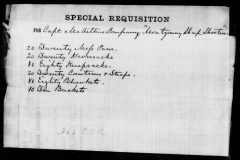 SPECIAL REQUISITION
FOR Capt. McArthur Company "Montgomery Sharp Shooters"
20 Twenty Mess Pans
20 Twenty Haversacks
80 Eighty Knapsacks
20 Twenty Canteens & Straps
80 Eighty Blankets
10 Ten Buckets